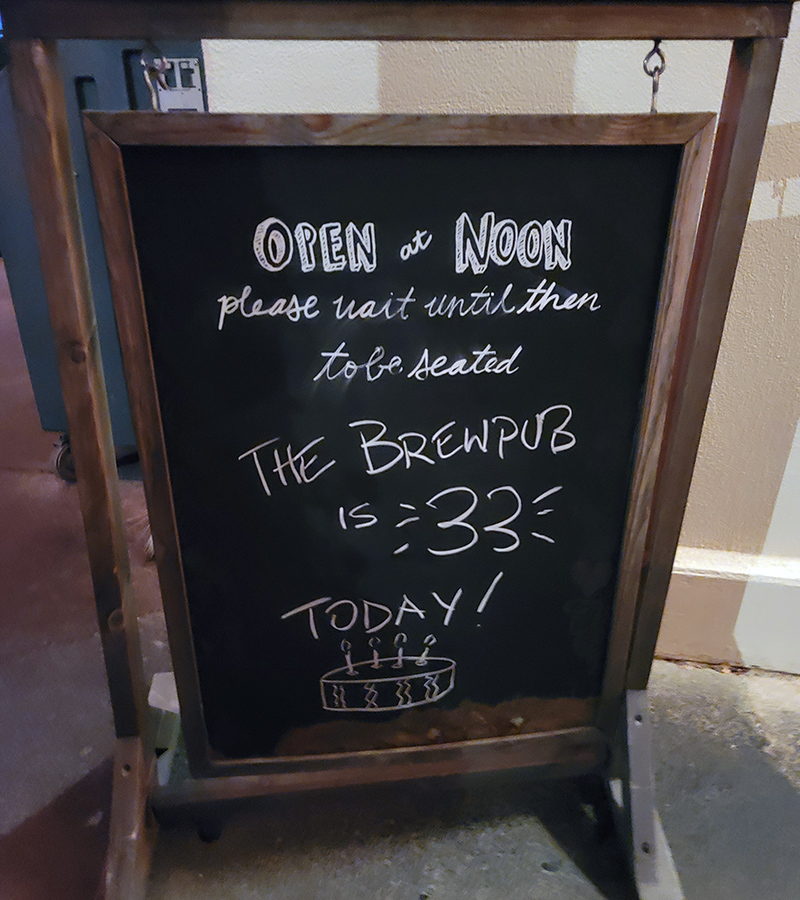 OPEN at NOON
please wait until then
to be seated
THE BREWPUB
IS 33
TODAY!